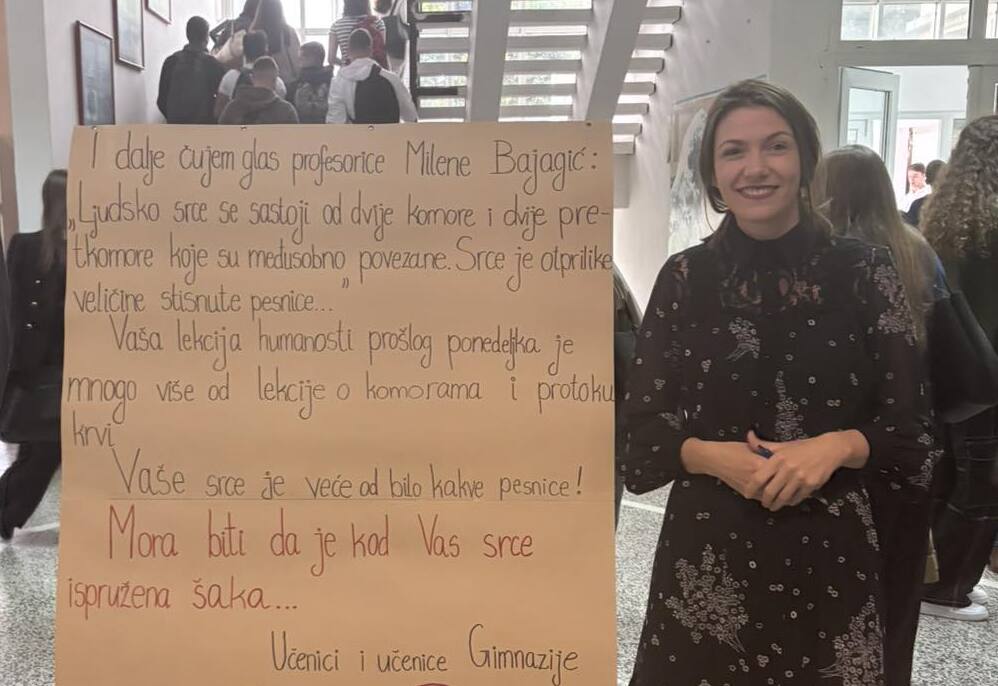 I dalje čujem glas profesorice Milene Bajagić:
„Ljudsko srce se sastoji od dvije komore i dvije pre-
tkomore koje su međusobno povezane. Srce je otprilike
veličine stisnute pesnice...”
Vaša lekcija humanosti prošlog ponedeljka je
mnogo više od lekcije o komorama i protoku
krvi
Vaše srce je veće od bilo kakve pesnice!
Mora biti da je kod Vas srce
ispružena šaka...
Učenici i učenice Gimnazije